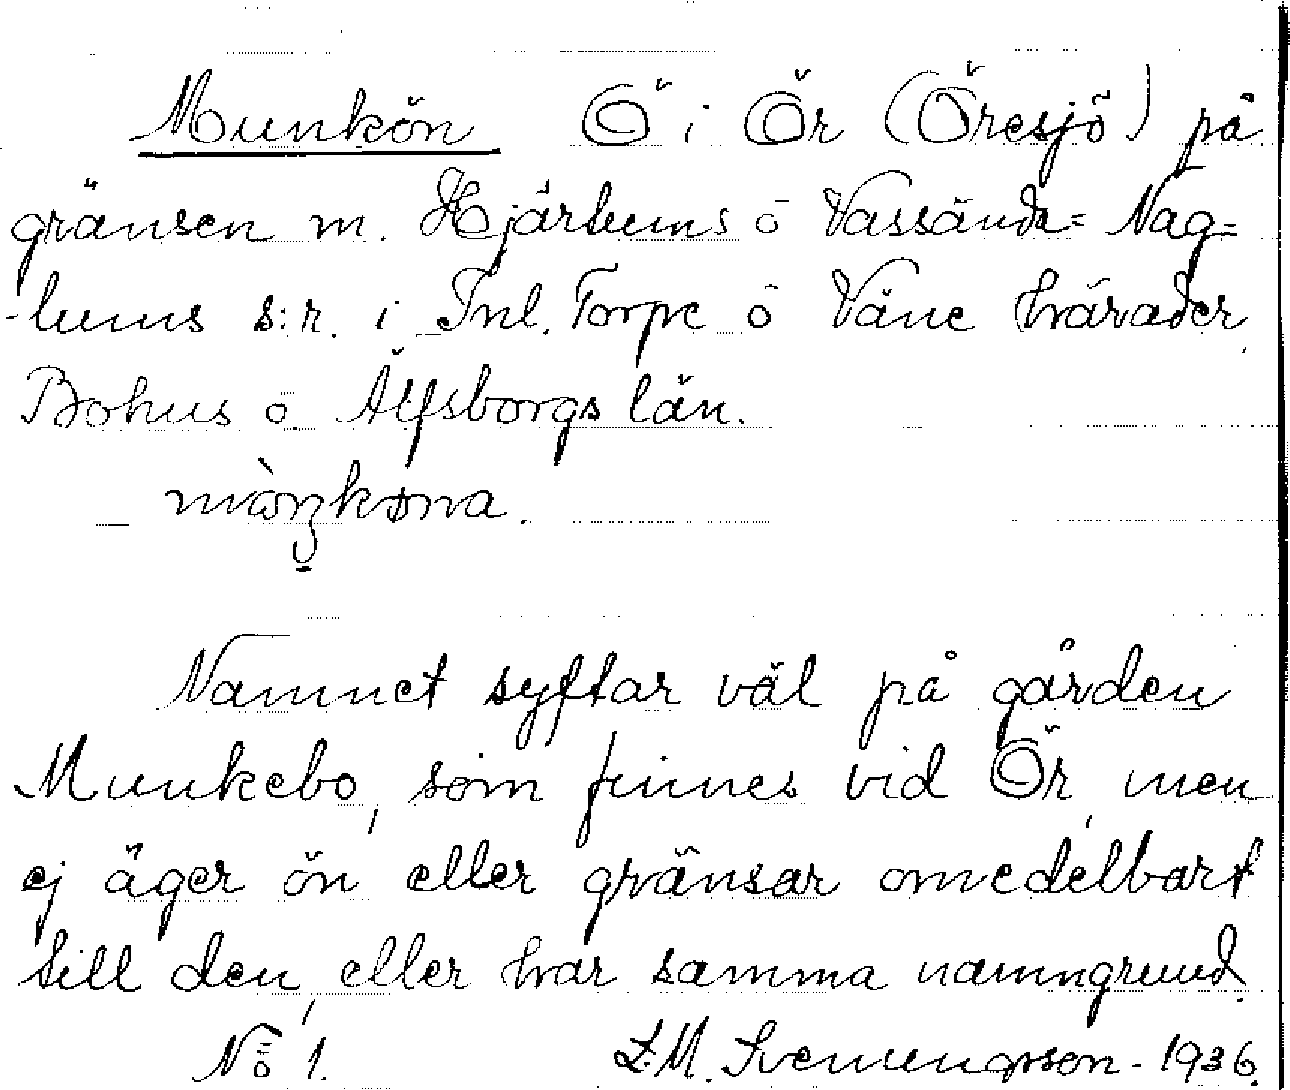 Munkön Ö i Ör (Öresjö) på
gränsen m. Hjärtums o Vassända= Nag=
-lums s:r. i Inl. Torpe o Väne härader
Bohus o Älfsborgs län.
Namnet syftar väl på gården
Munkebo, som finnes vid Ör, men
ej äger ön eller gränsar omedelbart
till den, eller har samma namngrund.
No 1. 1936.